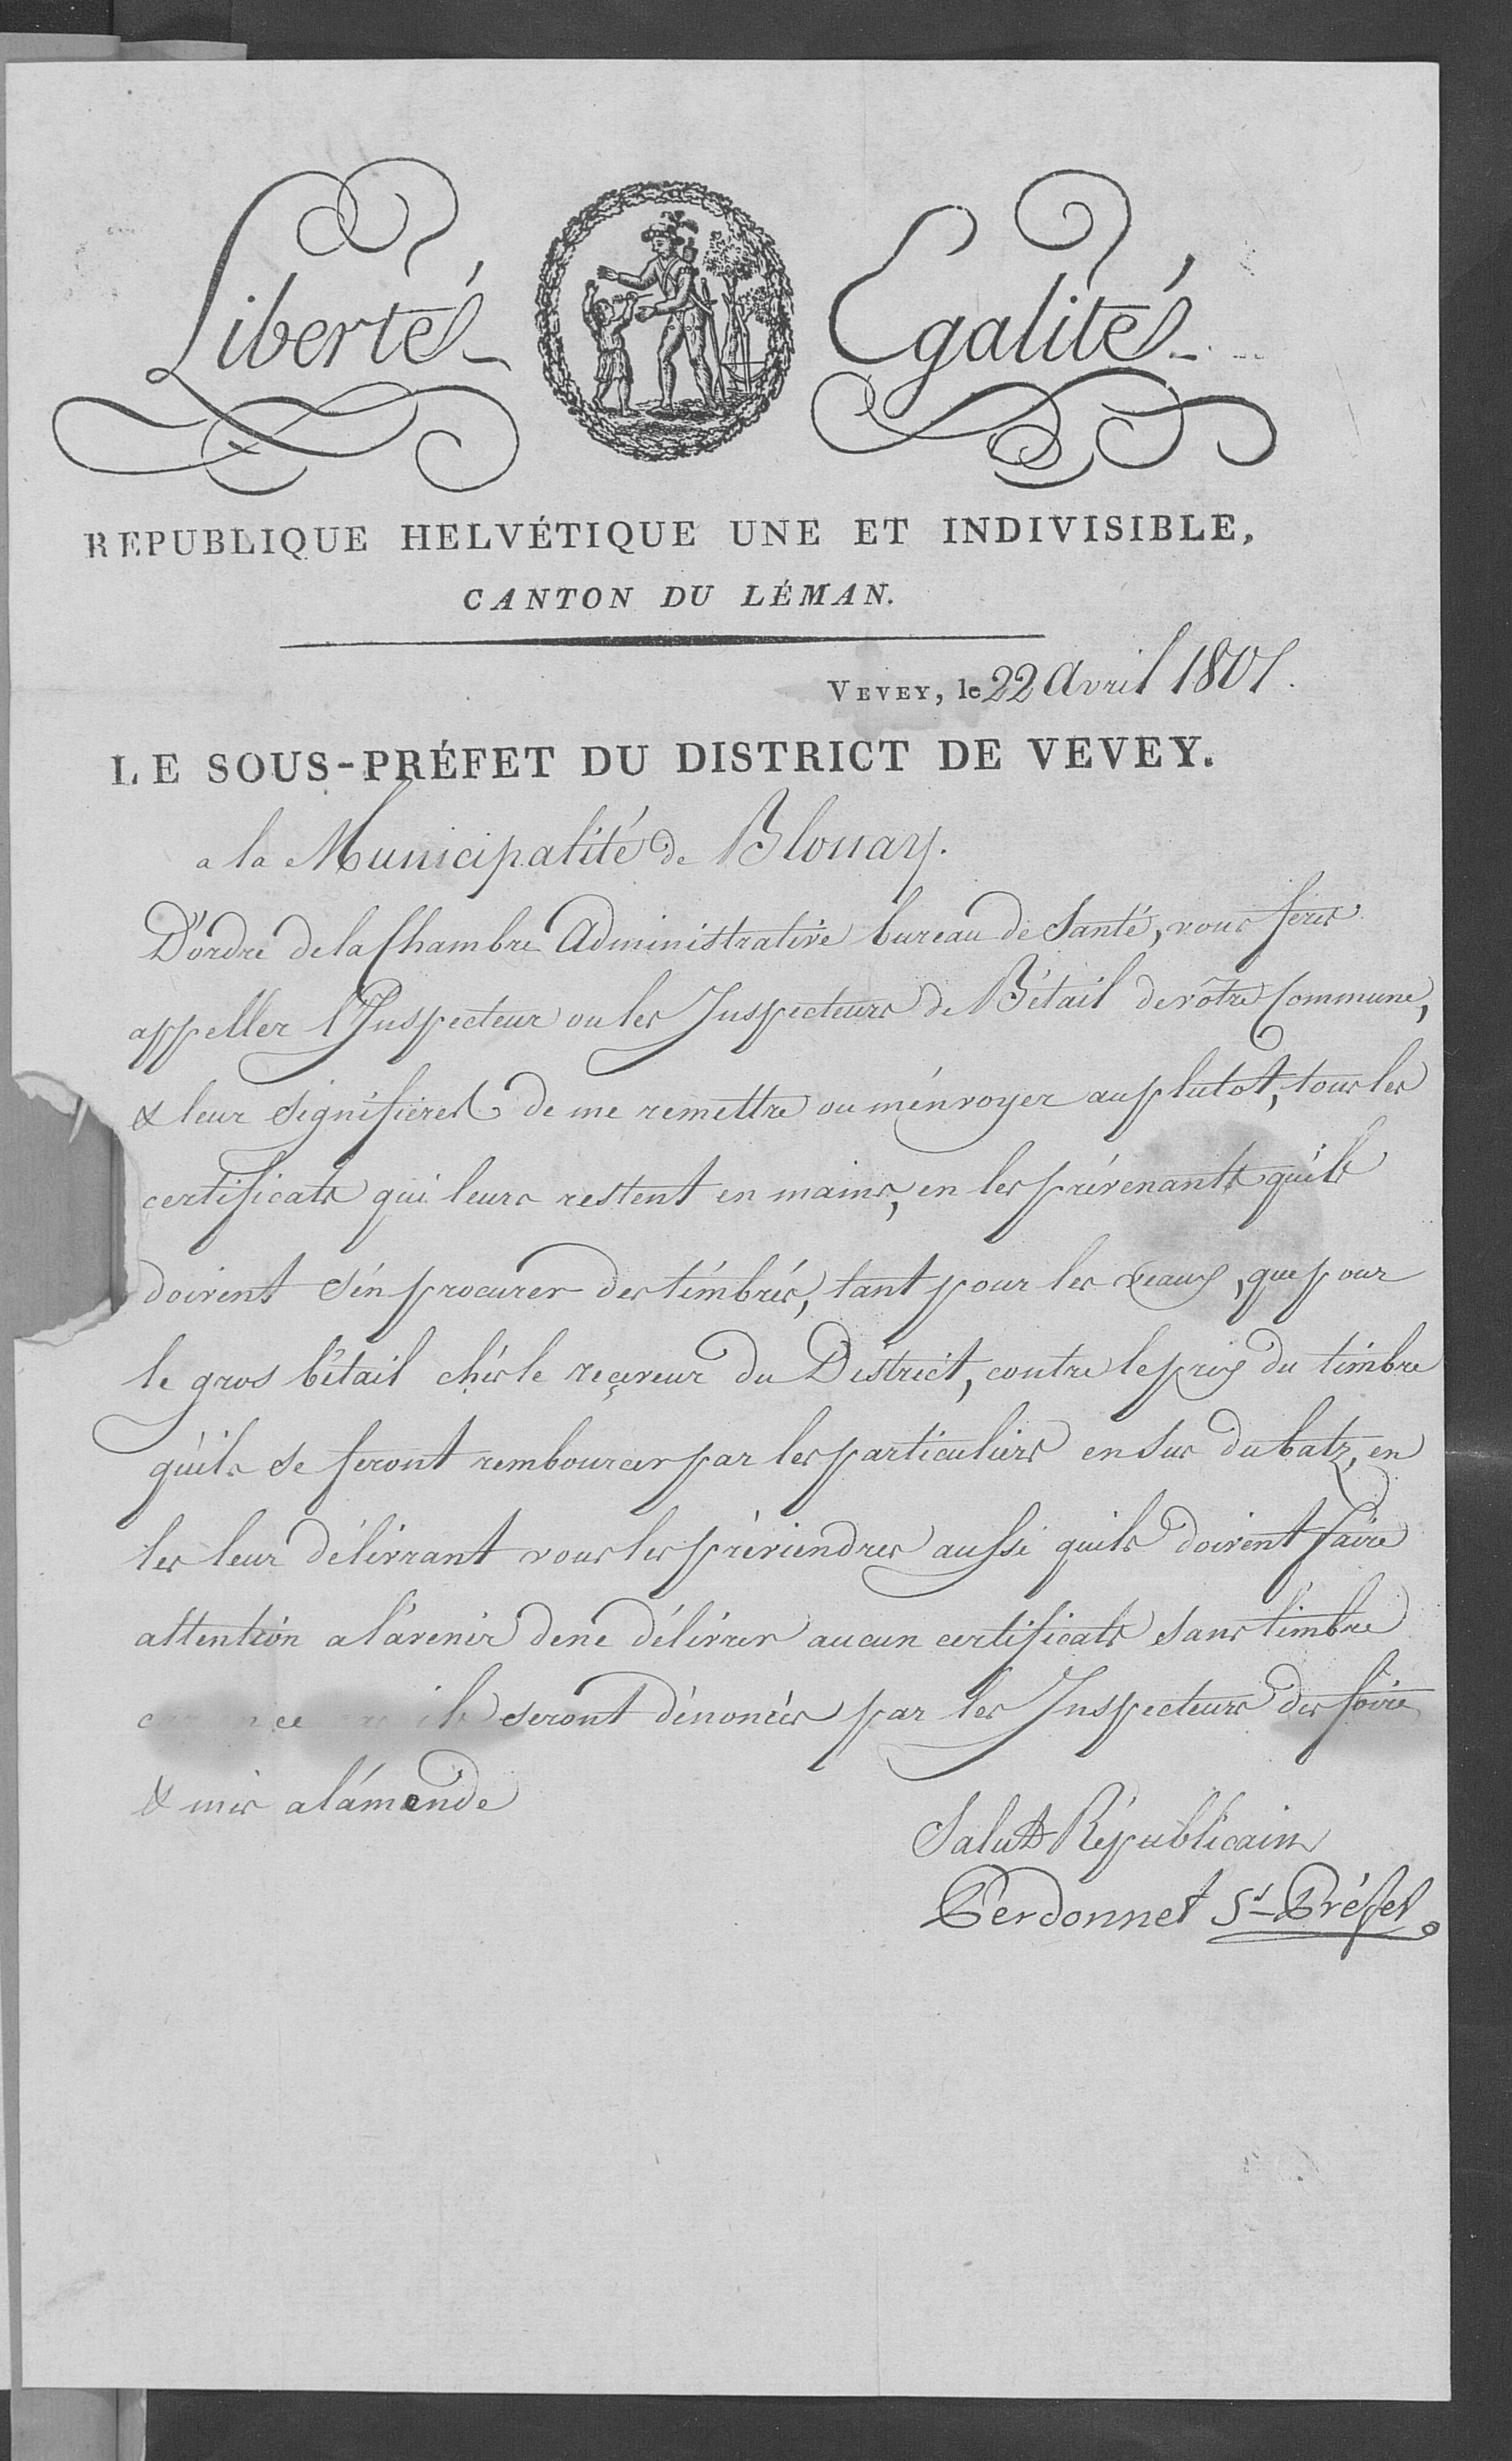 Liberté Egalité
REPUBLIQUE HELVÉTIQUE UNE ET INDIVISIBLE,
CANTON DU LÉMAN.
VEVEY, le 22 Avril 1801.
LE SOUS-PRÉFET DU DISTRICT DE VEVEY.
a la Municipalité de Blonay.
D'ordre de la Chambre Administrative bureau de Santé, vous ferés
appeller l'Inspecteur ou les Inspecteurs de Bétail de vôtre Commune,
& leur signifieres de me remettre ou m'énvoyer au plutot, tous les
certificats qui leurs restent en mains, en les prévenants qu'ils
doivent s'én procurer des timbrés, tant pour les veaux, que pour
le gros bétail chés le reçeveur du District, contre le prix du timbre
qu'ils se feront rembourcer par les particuliers en sus du batz, en
les leur délivrant vous les préviendres aussi quils doivent faire
attention a l'avenir de ne délivrer aucun certificats sans timbre
ce ils seront dénoncés par les Inspecteurs des foire
& mis a l'amende
Salut Républicain
Perdonnet St-Préfet